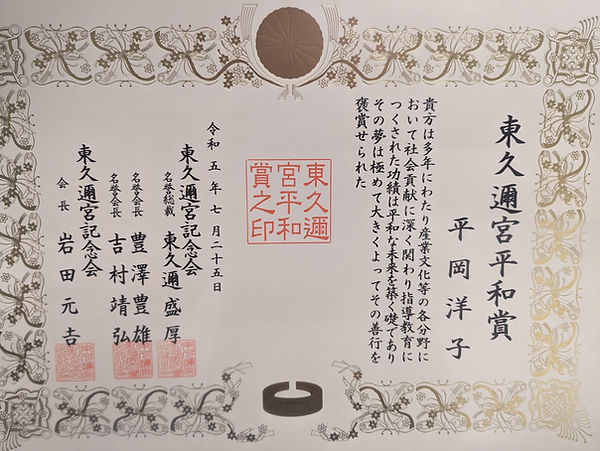 東久邇宮平和賞
平岡洋子
貴方は多年にわたり産業文化等の各分野に
おいて社会貢献に深く関わり指導教育に
つくされた功績は平和な未来を築く礎であり
その夢は極めて大きくよってその善行を
褒賞せられた
東久邇
宮平和
賞之印
令和五年七月二十五日
東久邇宮記念会
名誉総裁 東久邇盛厚
名誉会長 豊澤豊雄
名誉会長 吉村靖弘
東久邇宮記念会
会長 岩田元吉